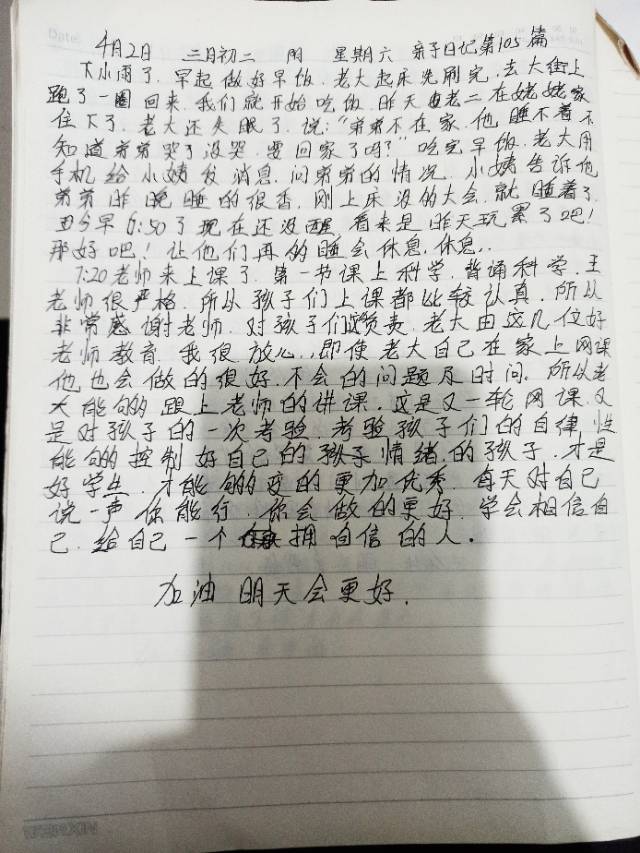 Date:
4月2日 三月初二 阴 星期六 亲子日记第105篇
下小雨了.早起做好早饭.老大起床先刷完.去大街上
跑了一圈回来.我们就开始吃饭.昨天老二在姥姥家
住下了.老大还失眠了.说:“弟弟不在家.他睡不着不
知道弟弟哭了没哭.要回家了吗?”吃完早饭.老大用
手机给小姨发消息.问弟弟的情况.小姨告诉他
弟弟昨晚睡的很香.刚上床没多大会.就睡着了.
到今早6:50了现在还没醒.看来是昨天玩累了吧!
那好吧!让他们再多睡会休息.休息..
7:20老师来上课了.第一节课上科学.背诵科学.王
老师很严格.所以孩子们上课都比较认真.所以
非常感谢老师.对孩子们负责.老大由这几位好
老师教育.我很放心.即使老大自己在家上网课
他也会做的很好.不会的问题及时问.所以老
大能够跟上老师的讲课.这是又一轮网课.又
是对孩子的一次考验.考验孩子们的自律性
能够控制好自己的孩子情绪.的孩子.才是
好学生.才能够变的更加优秀.每天对自己
说一声你能行.你会做的更好.学会相信自
己.给自己一个拥自信的人.
加油 明天会更好.